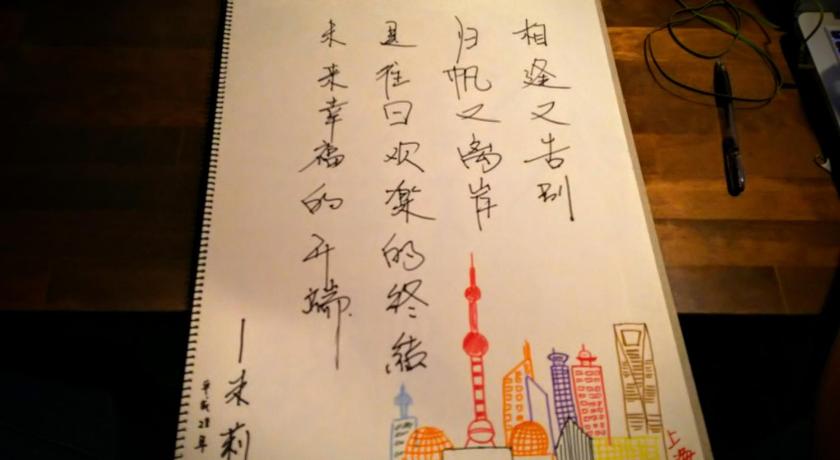 相逢又告别
归帆又离岸
是往日欢楽的终结
未来幸福的开端.
—米莉
平成28年
上海